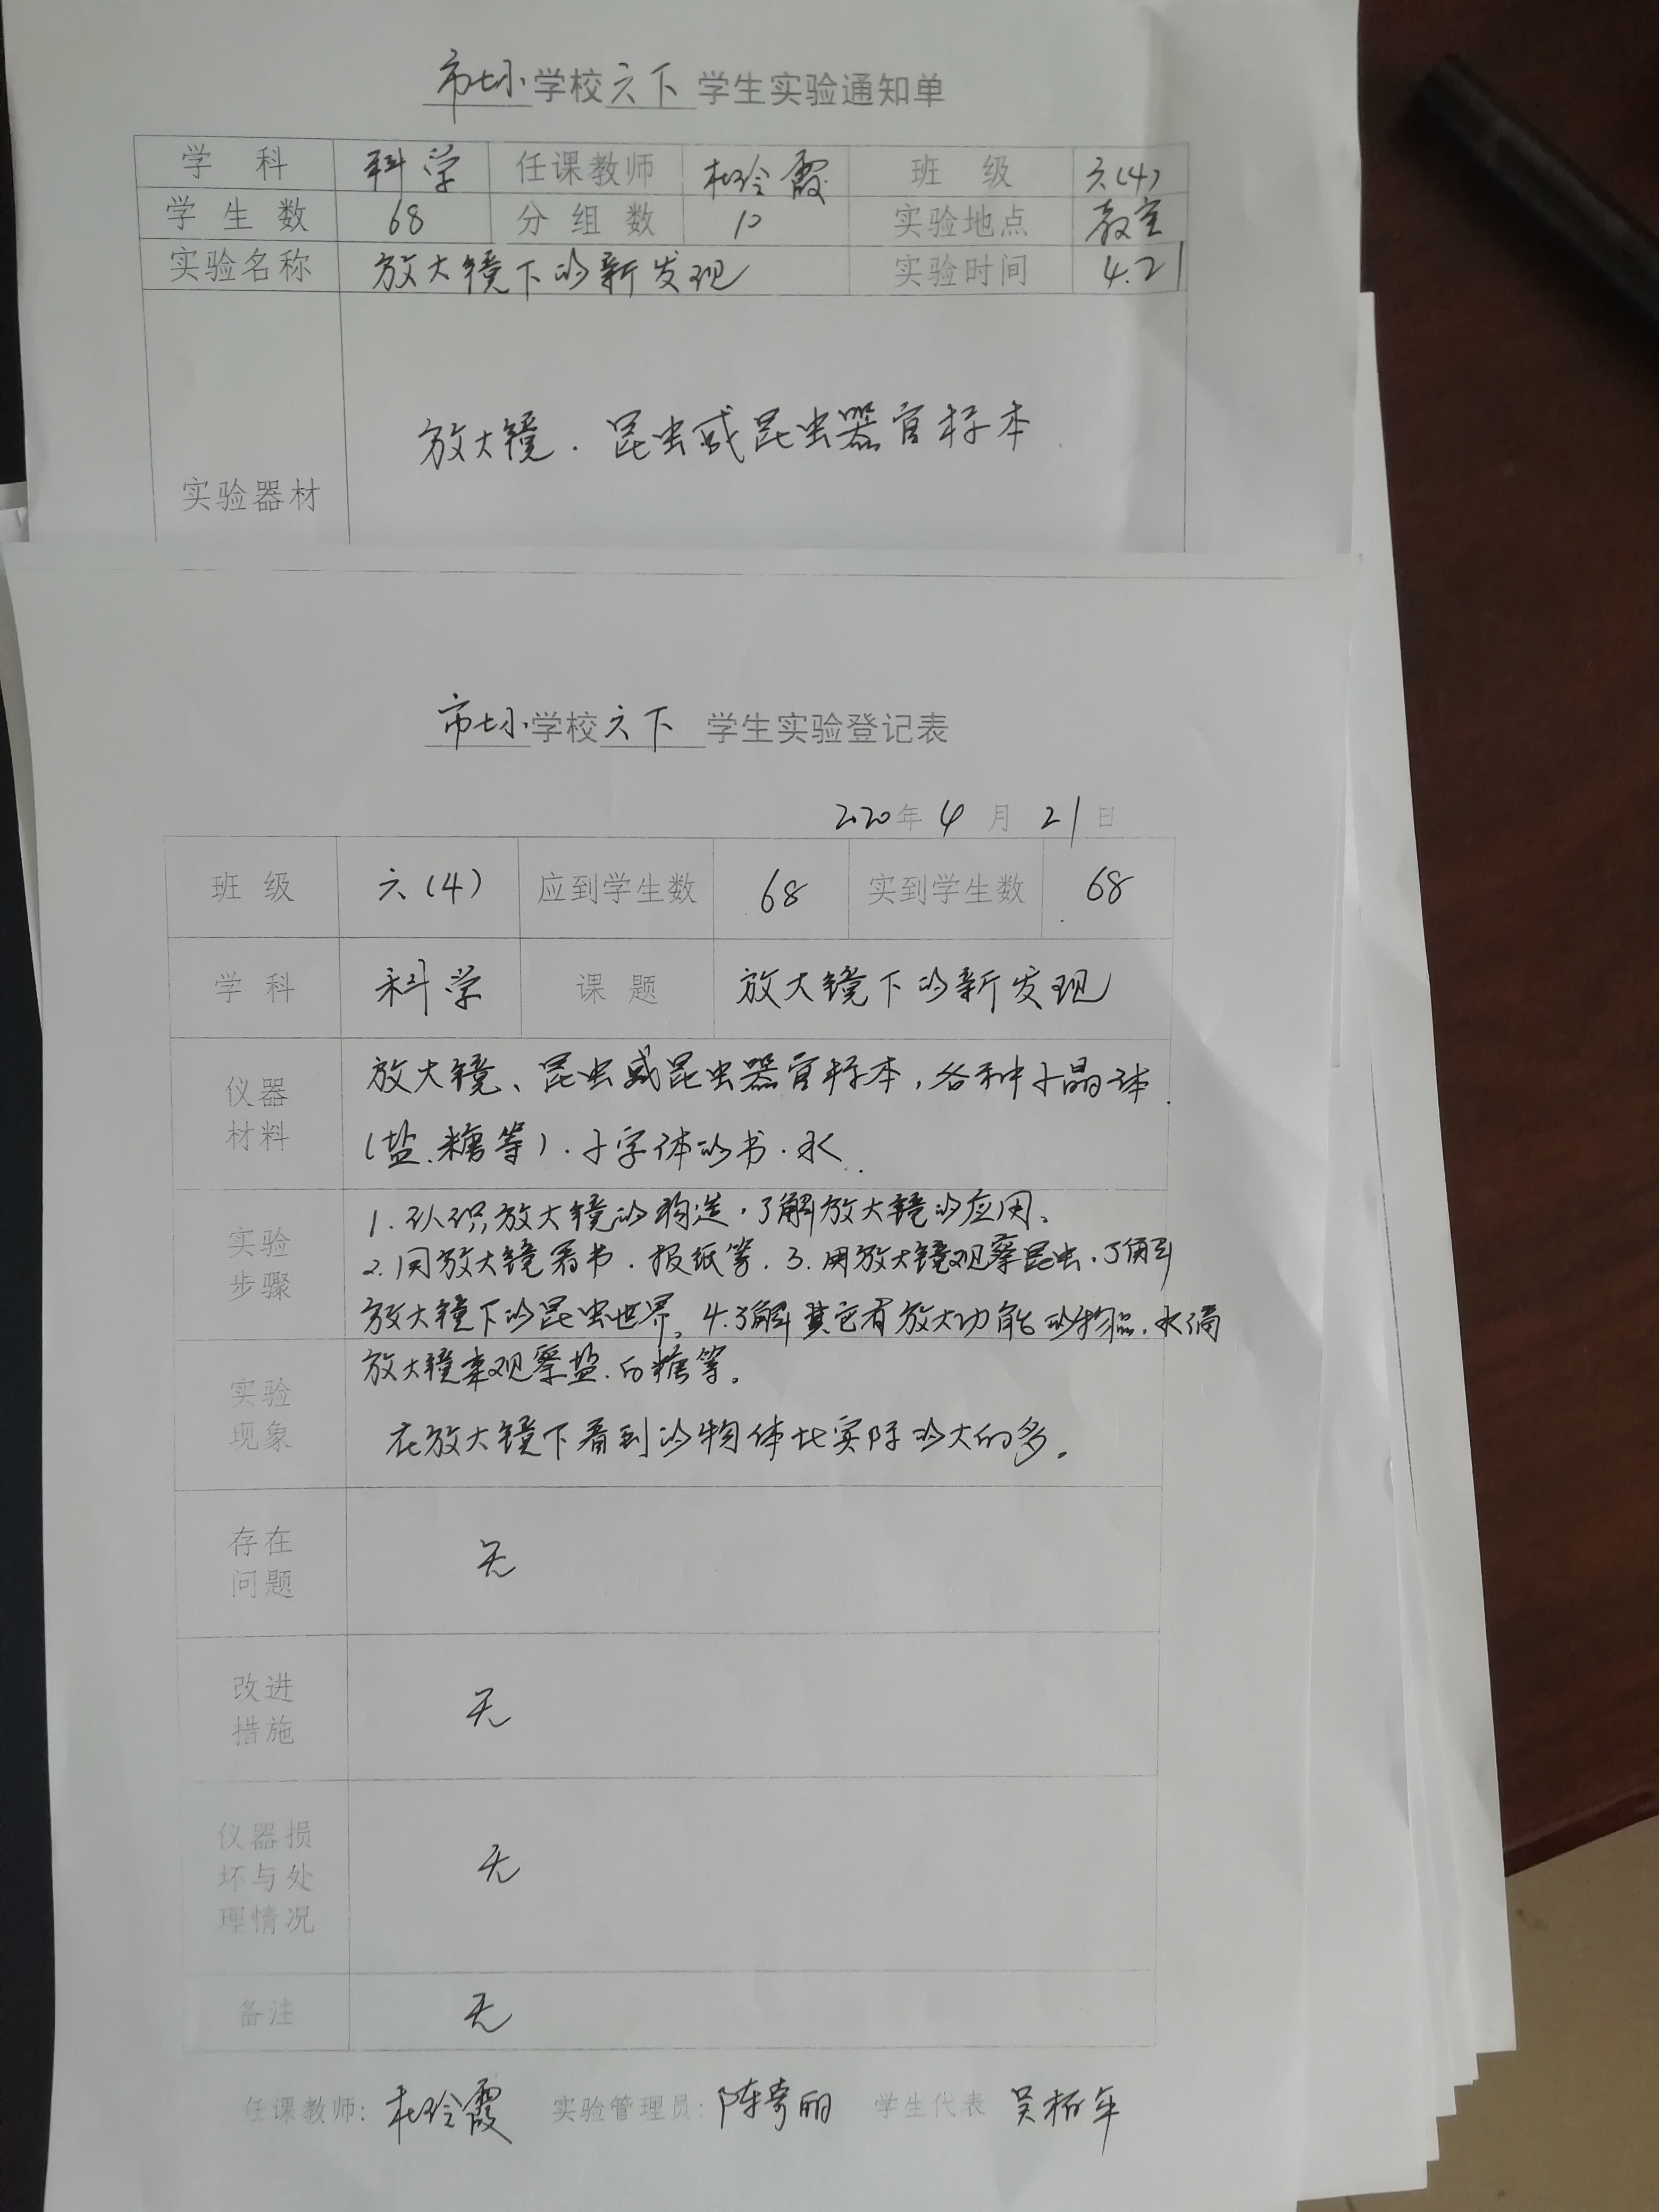 市七小学校六下 学生实验通知单
学 科 科学 任课教师 杜玲霞 班 级 六(4)
学生数 68 分组数 10 实验地点 教室
实验名称 放大镜下的新发现 实验时间 4.21
放大镜.昆虫或昆虫器官标本
实验器材
市七小学校六下 学生实验登记表
2020年4月21日
班 级 六(4) 应到学生数 68 实到学生数 68
学 科 科学 课 题 放大镜下的新发现
仪器材料 放大镜、昆虫或昆虫器官标本,各种小晶体
(盐.糖等).小字体的书.水
实验步骤 1.认识放大镜的构造.了解放大镜的应用、
2.用放大镜看书.报纸等.3.用放大镜观察昆虫.了解
放大镜下的昆虫世界。4.了解其它有放大功能的物品.水滴
放大镜来观察盐.白糖等。
实验现象 在放大镜下看到的物体比实际的大的多。
存在问题 无
改进措施 无
仪器损坏与处理情况 无
备注 无
任课教师:杜玲霞 实验管理员: 学生代表